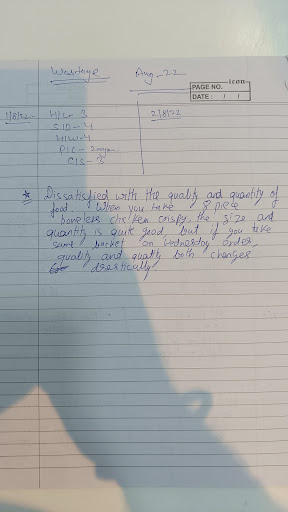 Wastage Aug-22
icon
PAGE NO.
DATE: / /
1/8/22 H/L- 3 2/8/22
S/D-4
H/W-4
P/C-
C/S-3
* Dissatisfied with the quality and quantity of
food. When you take 8 piece
boneless chicken crispy the size and
quantity is quite good but if you take
same bucket on Wednesday order,
quality and both changes
drastically